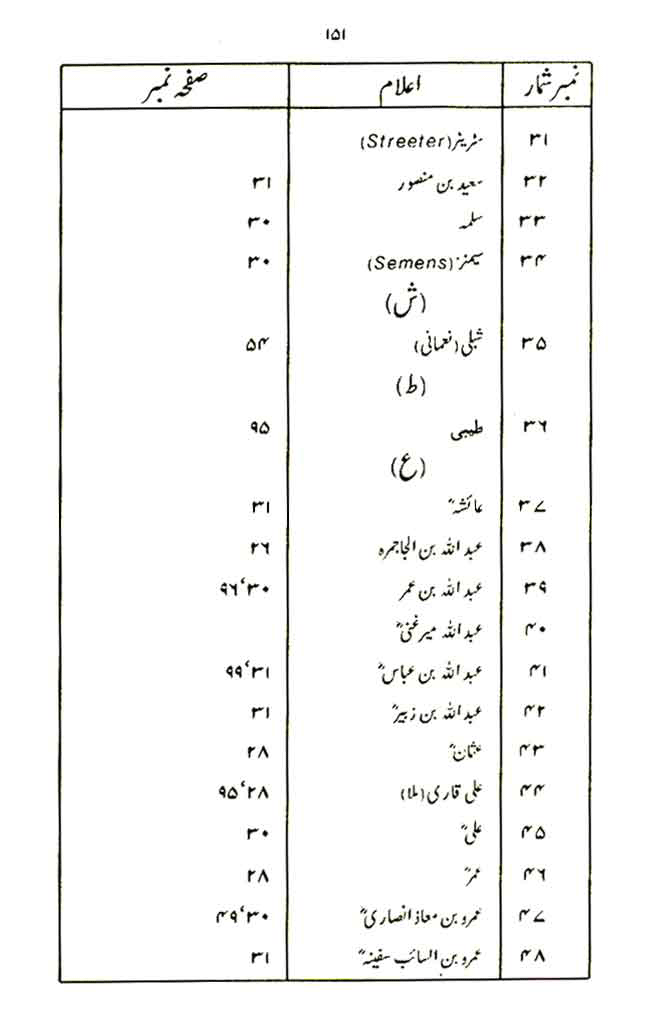 ۱۵۱
نمبر شمار اعلام صفحہ نمبر
۳۱ سٹریٹر (Streeter)
۳۲ سعید بن منصور ۳۱
۳۳ سلمہ ۳۰
۳۴ سیمنز (Semens) ۳۰
(ش)
۳۵ شبلی (نعمانی) ۵۴
(ط)
۳۶ طیبی ۹۵
(ع)
۳۷ عائشہؓ ۳۱
۳۸ عبداللہ بن الجاجمرہ ۲۶
۳۹ عبداللہ بن عمر ۳۰، ۹۶
۴۰ عبداللہ میر غنیؒ
۴۱ عبداللہ بن عباسؓ ۳۱، ۹۹
۴۲ عبداللہ بن زبیرؓ ۳۱
۴۳ عثمانؓ ۲۸
۴۴ علی قاری (ملا) ۲۸، ۹۵
۴۵ علیؓ ۳۰
۴۶ عمرؓ ۲۸
۴۷ عمرو بن معاذ انصاریؓ ۳۰، ۴۹
۴۸ عمرو بن السائب سفینہؓ ۳۱